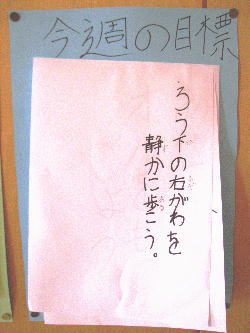 今週の目標
ろう下の右がわを
静かに歩こう。